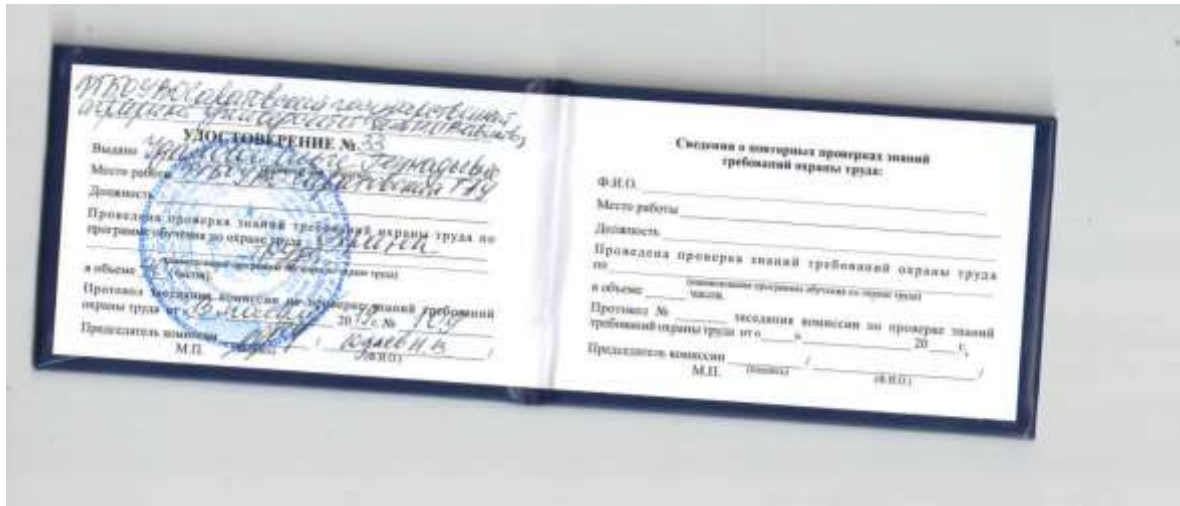 ФГБОУ ВО Саратовский государственный
аграрный университет им. Н.И. Вавилова
УДОСТОВЕРЕНИЕ № 33
Выдано Геннадьевне
Место работы ФГБОУ ВО Саратовский ГАУ
Должность
Проведена проверка знаний требований охраны труда по
программе обучения по охране труда охрана
труда
(наименование программы обучения по охране труда)
в объеме (часов)
Протокол заседания комиссии по проверке знаний требований
охраны труда от « 20 г. №
Председатель комиссии / /
М.П. (подпись) (Ф.И.О.)
Сведения о повторных проверках знаний
требований охраны труда:
Ф.И.О.
Место работы
Должность
Проведена проверка знаний требований охраны труда
по
(наименование программы обучения по охране труда)
в объеме часов.
Протокол № заседания комиссии по проверке знаний
требований охраны труда от « » 20 г.
Председатель комиссии / /
М.П. (подпись) (Ф.И.О.)